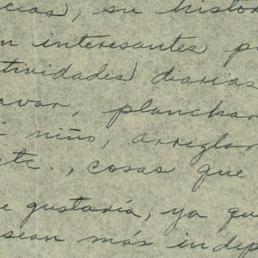 cias, su histor
n interesantes p
tividades diarias
avar, planchar
i niño, arreglar
etc., cosas que
e gustaría, ya qu
sean más indep